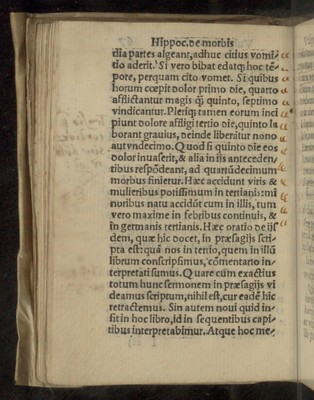 Hippoc. de morbis
dia partes algeant, adhuc citius vomi⸗
tio aderit. Si vero bibat edatq; hoc tē⸗
pore, perquam cito vomet. Si quibus
horum cœpit dolor primo die, quarto
afflictantur magis q̃ quinto, septimo
vindicantur. Pleriq; tamen eorum inci
piunt dolore affligi tertio die, quinto la
borant grauius, deinde liberātur nono
aut vndecimo. Quod si quinto die eos
dolor inuaserit, & alia in iis anteceden⸗
tibus respōdeant, ad quartūdecimum
morbus finietur. Hæc accidunt viris &
mulieribus potissimum in tertianis: mi
noribus natu accidūt cum in illis, tum
vero maxime in febribus continuis, &
in germanis tertianis. Hæc oratio de iis
dem, quæ hic docet, in præsagijs scri⸗
pta est: quā nos in tertio, quem in illū
librum conscripsimus, cōmentario in⸗
terpretati sumus. Quare cùm exactius
totum hunc sermonem in præsagijs vi
deamus scriptum, nihil est, cur eadē hic
retractemus. Sin autem noui quid in⸗
sit in hoc libro, id in sequentibus capi⸗
tibus interpretabimur. Atque hoc me⸗